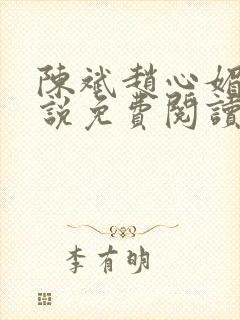 陳斌趙心媚
說免費閱讀
李有明